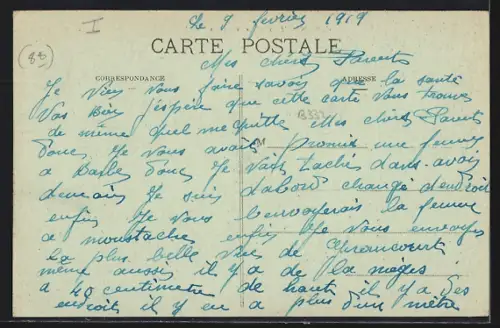 I
(88)
le 9 fevrier 1919
CARTE POSTALE
Mes chers Parents
CORRESPONDANCE
ADRESSE
Je vien vous faire savoir que la santé
Vas Bien Jéspère que cette carte vous trouve
de même quel me quitte Mes chers Parents
donc Je vous avais promis une femme
M
a Barbe donc Je vais taché dans avoir
demain Je suis d'abord changé dendroit
enfin Je vous la femme
a moustaches enfin Je vous envoyer
La plus belle vue de
même aussi il y a de la néges
a 40 centimetre de haut il y a des
endroit il y en a plus d'un mètre